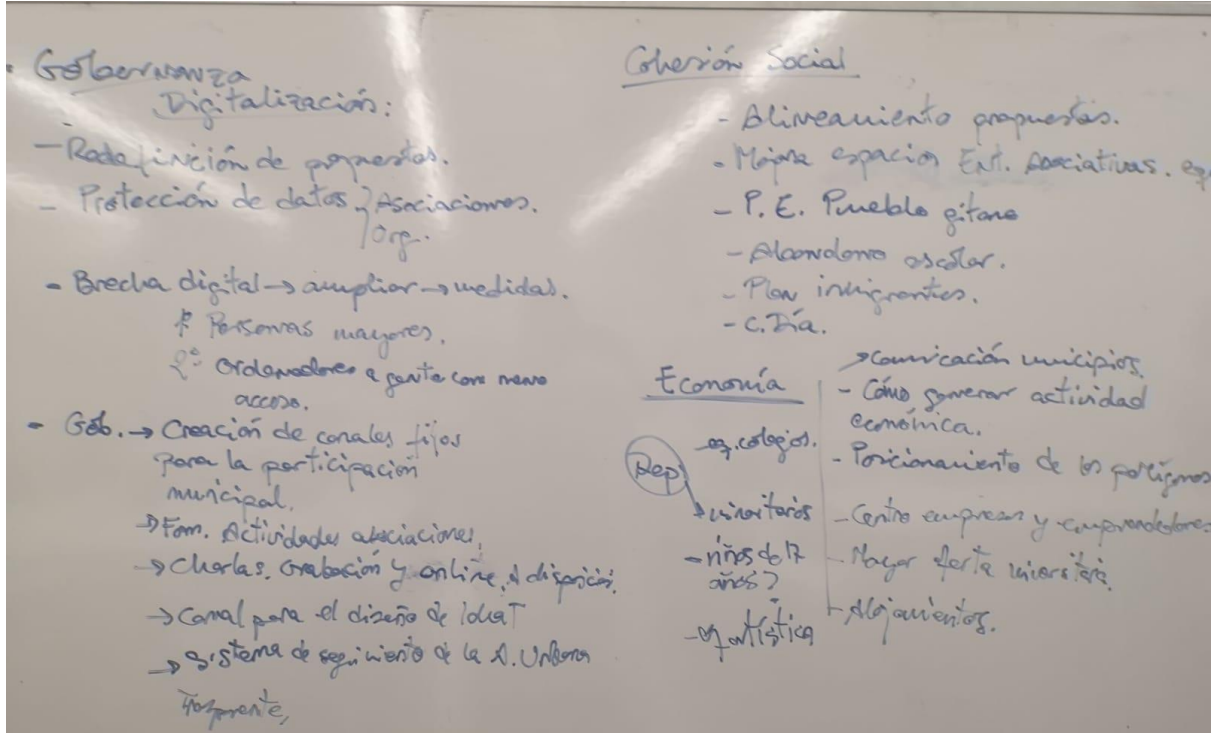 Gobernanza
Digitalización:
- Redefinición de propuestas.
- Protección de datos } Asociaciones.
Org.
- Brecha digital → ampliar → medidas.
Personas mayores.
2º Ordenadores a gente con menos
acceso.
- Gob. → Creación de canales fijos
para la participación
municipal.
→ Fom. Actividades asociaciones.
→ Charlas. Grabación y online. A disposición.
→ Canal para el diseño de
→ Sistema de seguimiento de la A. Urbana
Cohesión Social
- Alineamiento propuestas.
- Mejora espacios Ent. Asociativas.
- P. E. Pueblo gitano
- Abandono escolar.
- Plan inmigrantes.
- C. Día.
Economía
- colegios.
Rep.
- niños de 17
años?
- artística
→ Comunicación municipios.
- Cómo generar actividad
económica.
- Posicionamiento de los polígonos
- Centro empresas y emprendedores
- Mayor oferta universitaria.
- Alojamientos.